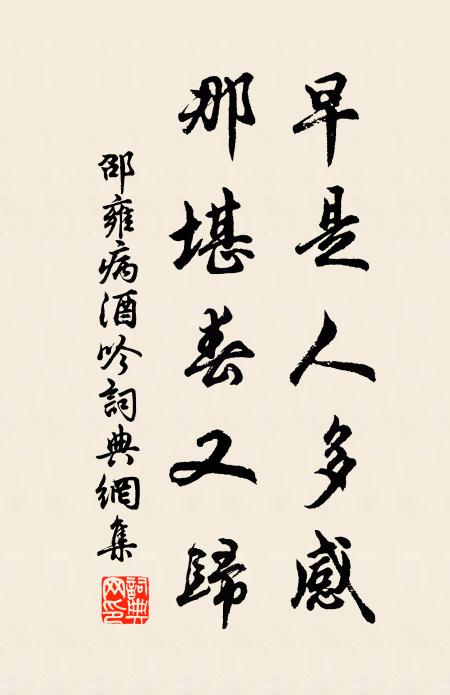 早是人多感
那堪春又歸
邵雍病酒吟詞典網集
詞典网印